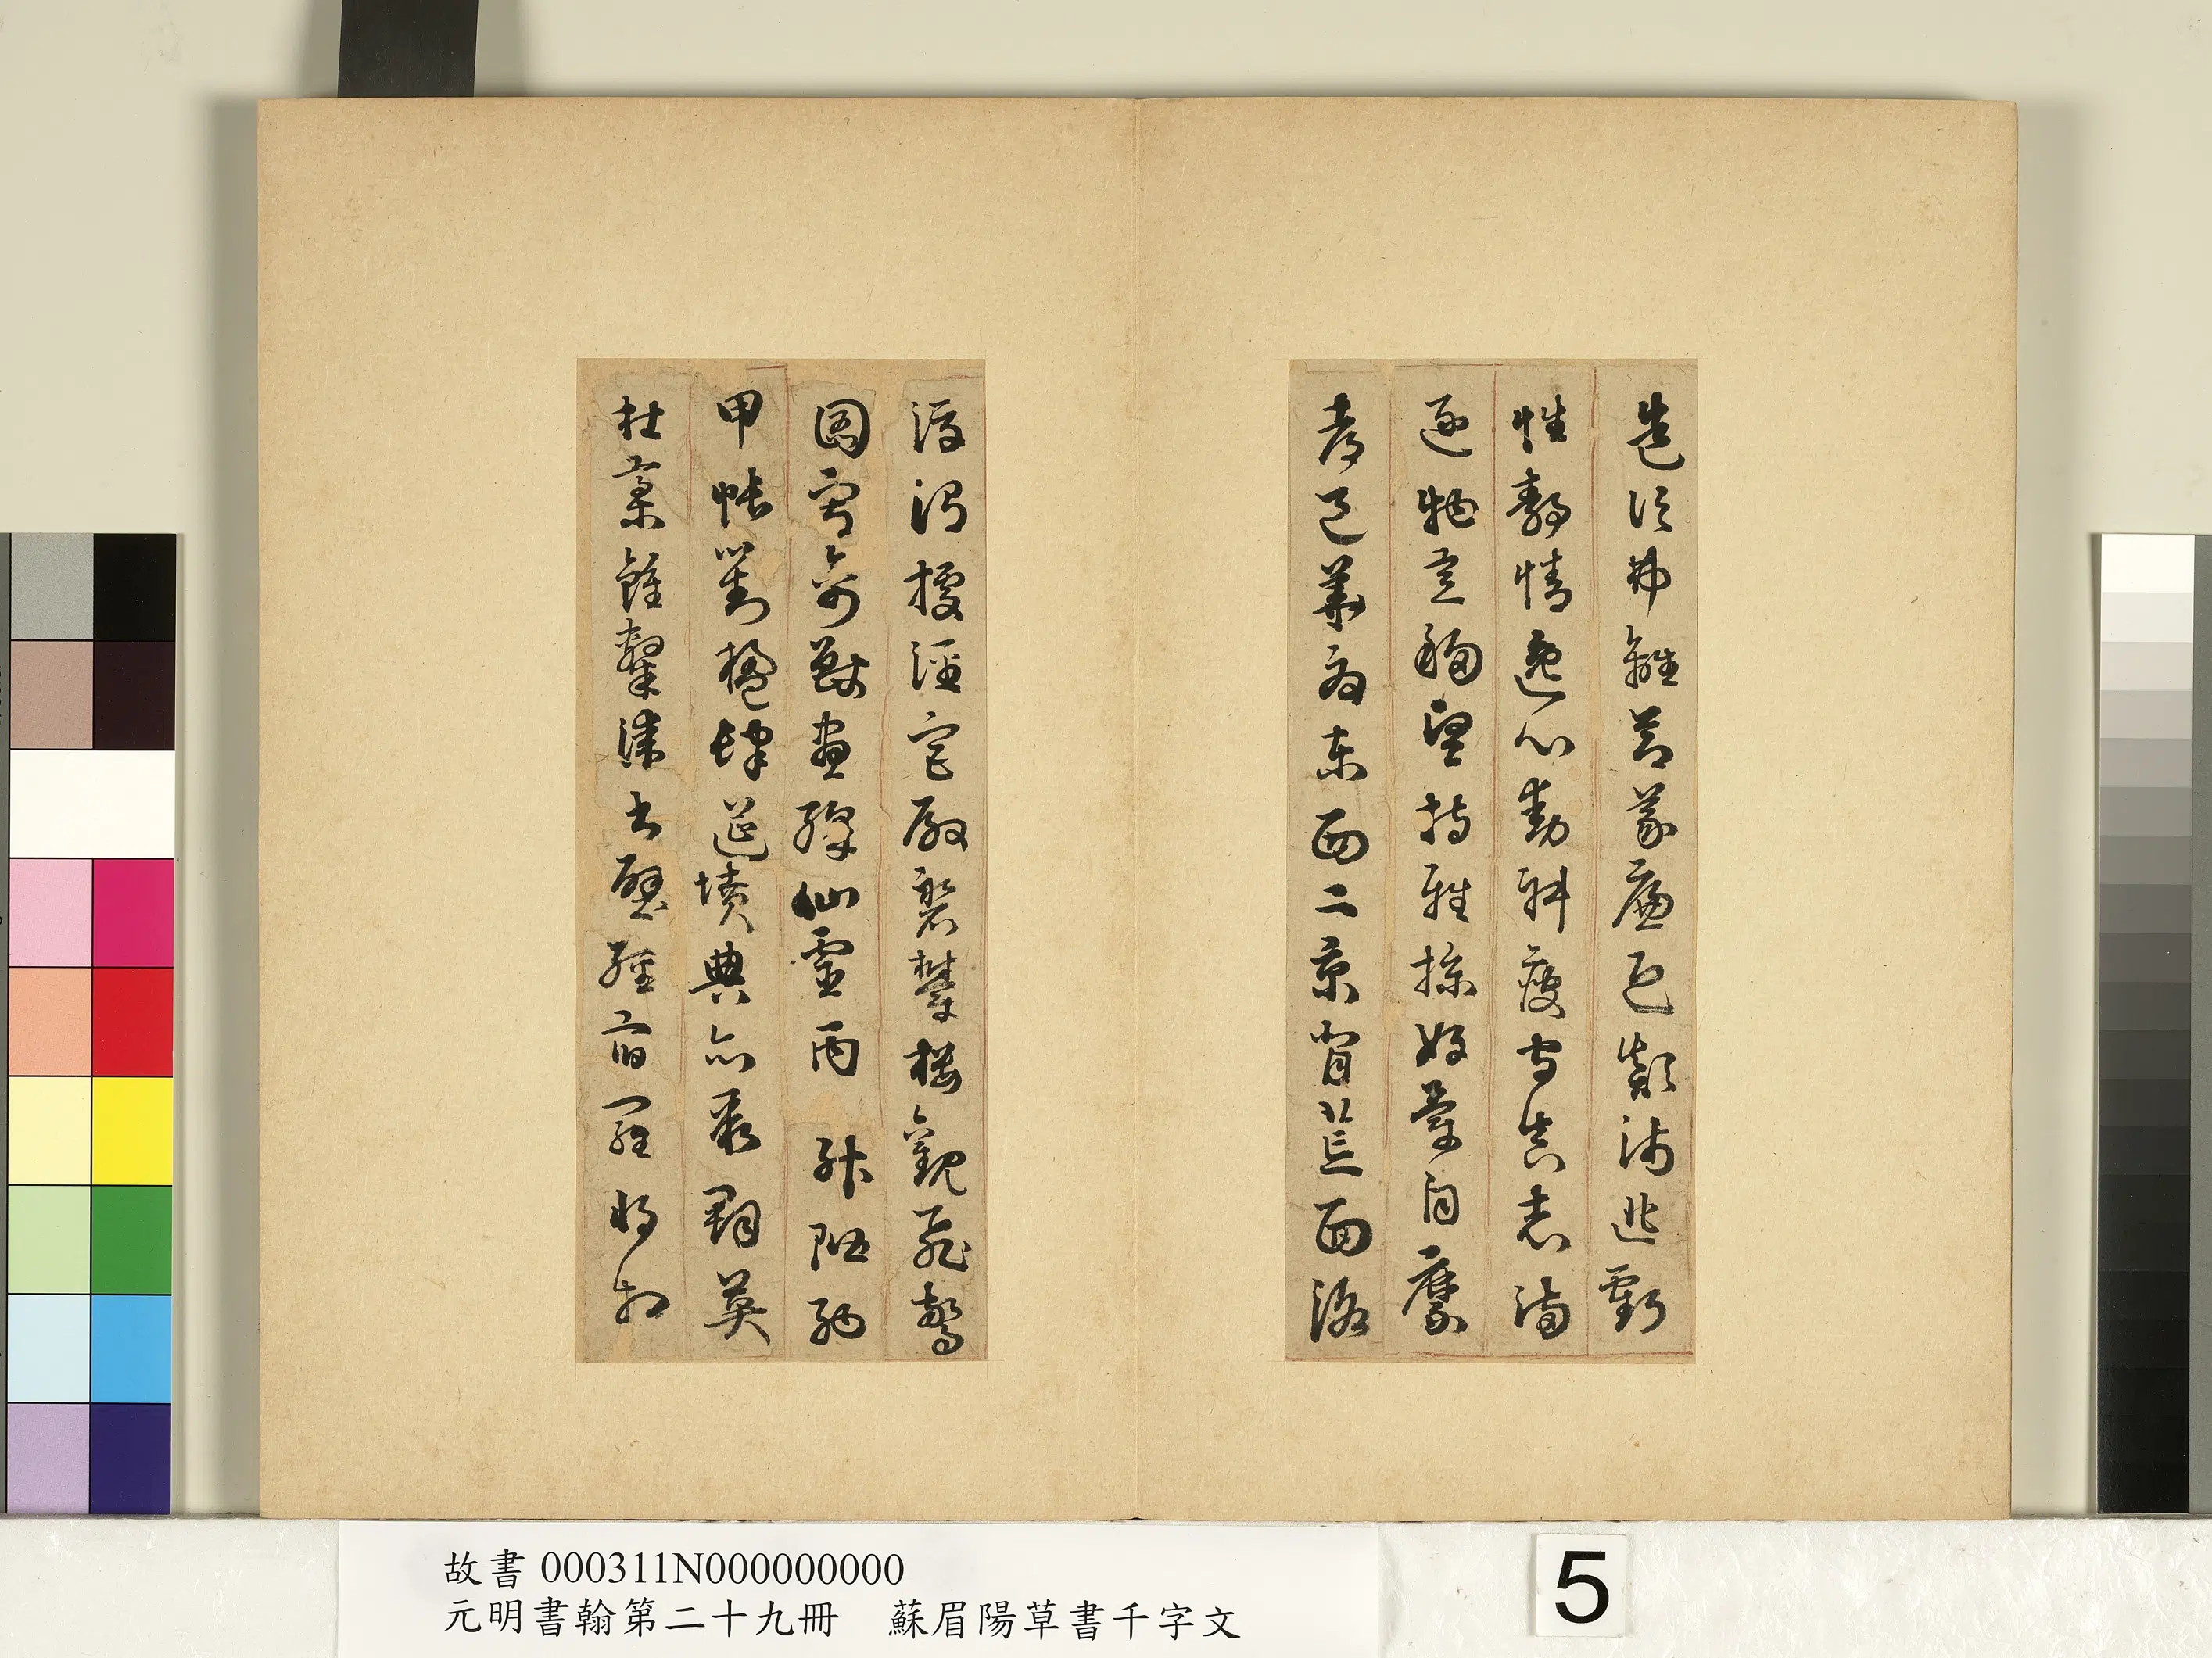 造次弗離節義廉退顛沛匪虧
性靜情逸心動神疲守真志滿
逐物意移堅持雅操好爵自縻
都邑華夏東西二京背芒面洛
浮渭據涇宮殿磐鬱樓觀飛驚
圖寫禽獸畫綵仙靈丙升階納
甲帳對楹肆筵墳典亦聚群英
杜稾鍾隸漆書壁經府羅將相
故書 000311N000000000
元明書翰第二十九冊 蘇眉陽草書千字文
5